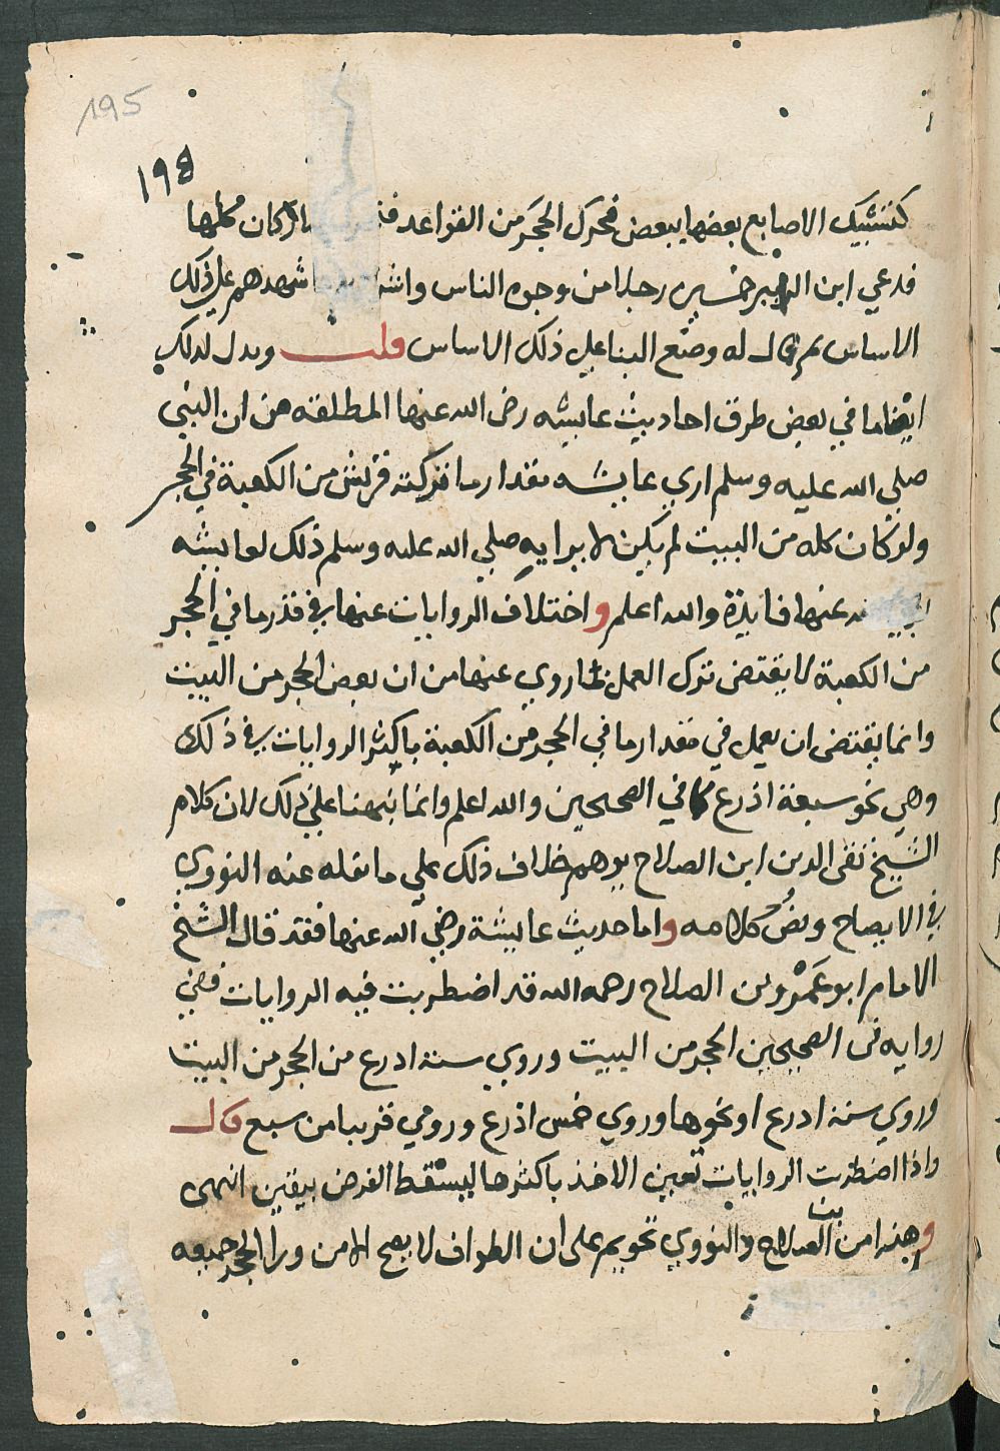 195
١٩٤
كتشبيك الاصابع بعضها ببعض فحرك الحجر من القواعد الاركان كلها
فدعي ابن الزبير خمسين رجلا من وجوه الناس واشهدهم علي ذلك
الاساس ثم قال له وضع البنا علي ذلك الاساس قلت ويدل لذلك
ايضا ما في بعض طرق احاديث عايشه رضى الله عنها المطلقه من ان النبى
صلى الله عليه وسلم اري عايشه مقدار ما تركته قريش من الكعبة في الحجر
ولو كان كله من البيت لم يكن لا برايه صلي الله عليه وسلم ذلك لعايشه
عنها فايدة والله اعلم واختلاف الروايات عنها في قدر ما في الحجر
من الكعبة لا يقتضى ترك العمل بما روي عنها من ان بعض الحجر من البيت
وانما يقتضى ان يعمل في مقدار ما في الحجر من الكعبة باكثر الروايات في ذلك
وهي نحو سبعة اذرع كما في الصحيحين والله اعلم وانما نبهنا علي ذلك لان كلام
الشيخ تقى الدين ابن الصلاح يوهم خلاف ذلك علي ما نقله عنه النووي
في الايضاح ونص كلامه واما حديث عايشة رضي الله عنها فقد قال الشيخ
الامام ابو عمرو بن الصلاح رحمه الله قد اضطربت فيه الروايات ففي
روايه فى الصحيحين الحجر من البيت وروي ستة اذرع من الحجر من البيت
وروي ستة اذرع او نحوها وروي خمس اذرع وروي قريبا من سبع قال
واذا اضطربت الروايات تعين الاخذ باكثرها ليسقط الفرض بيقين انتهى
وهذا من ابن الصلاح والنووي تحويم على ان الطواف لا يصح الا من ورا الحجر جميعه